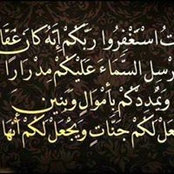 تُ اسْتَغْفِرُوا رَبَّكُمْ إِنَّهُ كَانَ غَفَّا
رْسِلِ السَّمَاءَ عَلَيْكُمْ مِدْرَارًا
وَيُمْدِدْكُمْ بِأَمْوَالٍ وَبَنِينَ
عَلْ لَكُمْ جَنَّاتٍ وَيَجْعَلْ لَكُمْ أَنْهَا